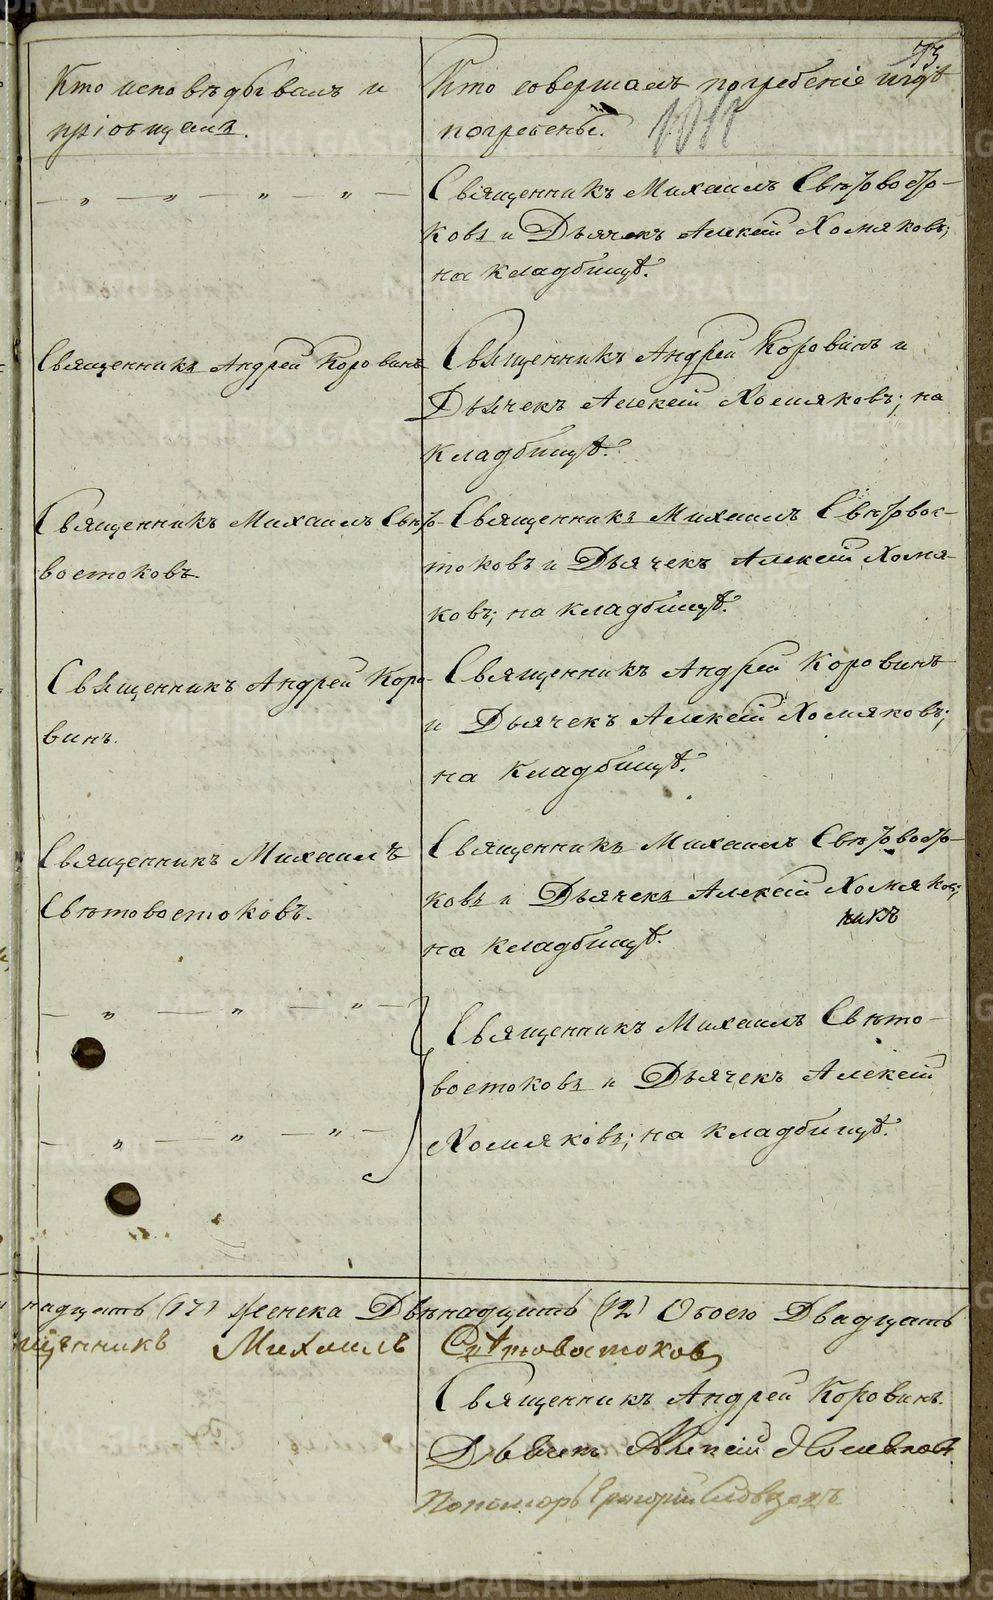 73
Кто исповѣдывалъ и
пріобщалъ.
Кто совершалъ погребеніе и гдѣ
погребены.
— „ — „ — „ — „ —
Священникъ Михаилъ Свѣтовосто-
ковъ и Дьячекъ Алексій Хомяковъ;
на кладбищѣ.
Священникъ Андрей Коровинъ
Священникъ Андрей Коровинъ и
Дьячекъ Алексій Хомяковъ; на
кладбищѣ.
Священникъ Михаилъ Свѣто-
востоковъ
Священникъ Михаилъ Свѣтовос-
токовъ и Дьячекъ Алексій Хомя-
ковъ; на кладбищѣ.
Священникъ Андрей Коро-
винъ.
Священникъ Андрей Коровинъ
и Дьячекъ Алексій Хомяковъ;
на кладбищѣ.
Священникъ Михаилъ
Свѣтовостоковъ.
Священникъ Михаилъ Свѣтовосто-
ковъ и Дьячекъ Алексій Хомяков;
на кладбищѣ.
— „ — „ — „ —
— „ — „ — „ —
Священникъ Михаилъ Свѣто-
востоковъ и Дьячекъ Алексій
Хомяковъ; на кладбищѣ.
надцать (17) Женска Двѣнадцать (12) Обоего Двадцать
щенникъ Михаилъ Свѣтовостоковъ
Священникъ Андрей Коровинъ.
Дьячекъ Алексій Хомяковъ.
Пономарь Григорій
METRIKI.GASO-URAL.RU